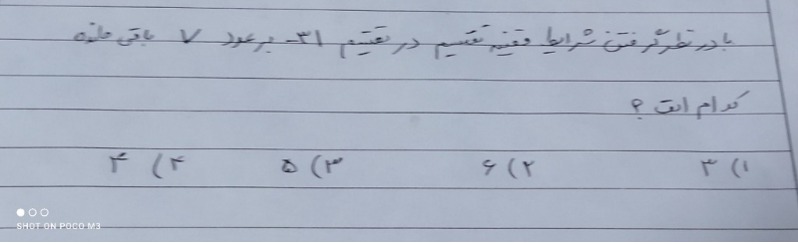 با در نظر گرفتن شرایط قضیه تقسیم در تقسیم ۳۱- بر عدد ۷ باقی مانده
کدام است ؟
۱) ۳ ۲) ۶ ۳) ۵ ۴) ۴
SHOT ON POCO M3